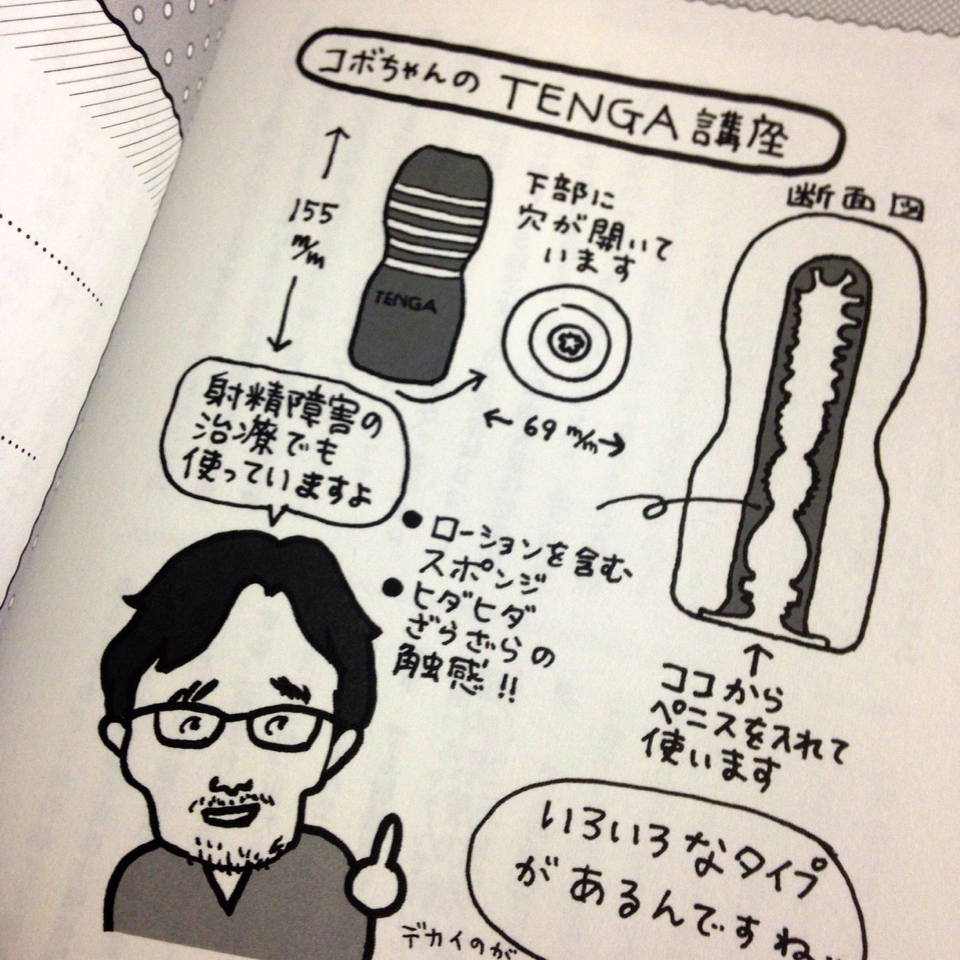 コボちゃんの TENGA 講座
155
m/m
TENGA
下部に
穴が開いて
います
← 69 m/m →
断面図
射精障害の
治療でも
使っていますよ
● ローションを含む
スポンジ
● ヒダヒダ
ざらざらの
触感!!
ココから
ペニスを入れて
使います
いろいろなタイプ
があるんですね
デカイのが